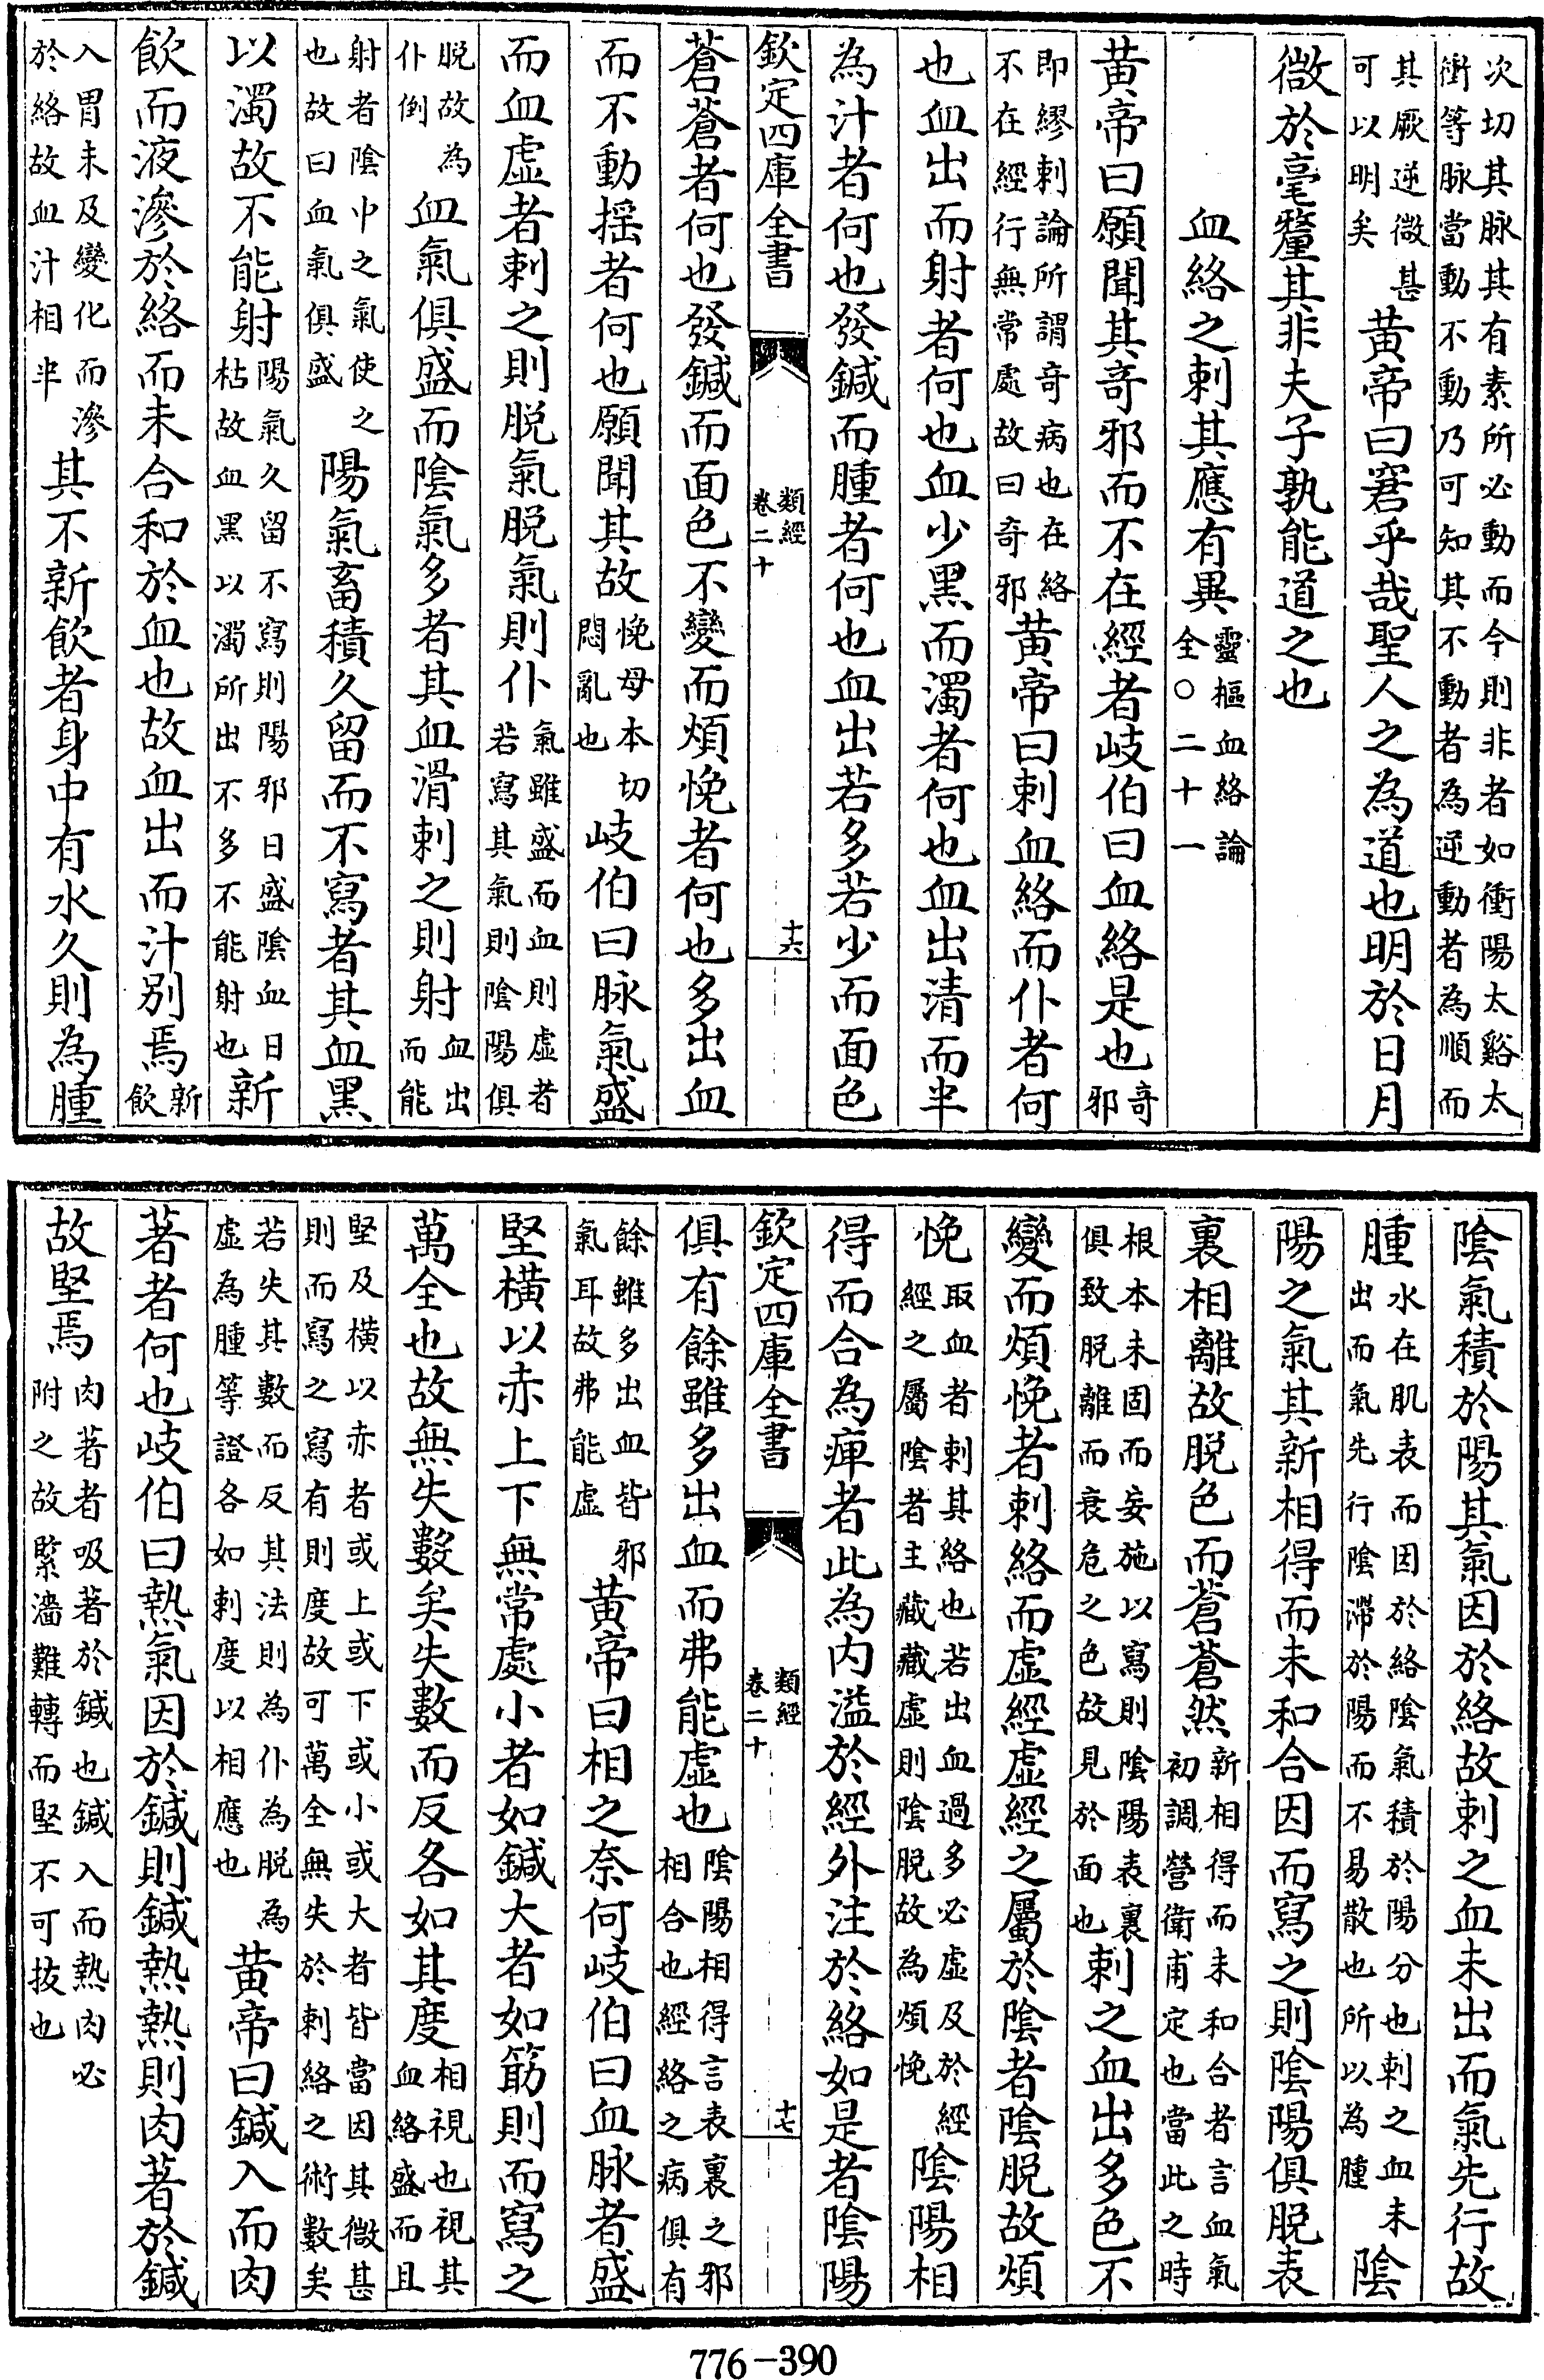 次切其脉其有素所必動而今則非者如衝陽太谿太
衝等脉當動不動乃可知其不動者為逆動者為順而
其厥逆微甚可以明矣黄帝曰窘乎哉聖人之為道也明於日月
微於毫釐其非夫子孰能道之也
血絡之刺其應有異靈樞血絡論全○二十一
黄帝曰願聞其奇邪而不在經者岐伯曰血絡是也奇邪
即繆刺論所謂奇病也在絡不在經行無常處故曰奇邪黄帝曰刺血絡而仆者何
也血出而射者何也血少黑而濁者何也血出清而半
為汁者何也發鍼而腫者何也血出若多若少而面色
欽定四庫全書 類經卷二十 十六
蒼蒼者何也發鍼而面色不變而煩悗者何也多出血
而不動摇者何也願聞其故悗母本切悶亂也岐伯曰脉氣盛
而血虚者刺之則脱氣脱氣則仆氣雖盛而血則虚者若寫其氣則陰陽俱
脱故為仆倒血氣俱盛而陰氣多者其血滑刺之則射血出而能
射者陰中之氣使之也故曰血氣俱盛陽氣畜積久留而不寫者其血黑
以濁故不能射陽氣久留不寫則陽邪日盛陰血日枯故血黑以濁所出不多不能射也新
飲而液滲於絡而未合和於血也故血出而汁别焉新飲
入胃未及變化而滲於絡故血汁相半其不新飲者身中有水久則為腫
陰氣積於陽其氣因於絡故刺之血未出而氣先行故
腫水在肌表而因於絡陰氣積於陽分也刺之血未出而氣先行陰滯於陽而不易散也所以為腫陰
陽之氣其新相得而未和合因而寫之則陰陽俱脱表
裏相離故脱色而蒼蒼然新相得而未和合者言血氣初調營衛甫定也當此之時
根本未固而妄施以寫則陰陽表裏俱致脱離而衰危之色故見於面也刺之血出多色不
變而煩悗者刺絡而虚經虚經之屬於陰者陰脱故煩
悗取血者刺其絡也若出血過多必虚及於經經之屬陰者主藏藏虚則陰脱故為煩悗陰陽相
得而合為痺者此為内溢於經外注於絡如是者陰陽
欽定四庫全書 類經卷二十 十七
俱有餘雖多出血而弗能虚也陰陽相得言表裏之邪相合也經絡之病俱有
餘雖多出血皆邪氣耳故弗能虚黄帝曰相之奈何岐伯曰血脉者盛
堅横以赤上下無常處小者如鍼大者如筋則而寫之
萬全也故無失數矣失數而反各如其度相視也視其血絡盛而且
堅及横以赤者或上或下或小或大者皆當因其微甚則而寫之寫有則度故可萬全無失於刺絡之術數矣
若失其數而反其法則為仆為脱為虚為腫等證各如刺度以相應也黄帝曰鍼入而肉
著者何也岐伯曰熱氣因於鍼則鍼熱熱則肉著於鍼
故堅焉肉著者吸著於鍼也鍼入而熱肉必附之故緊濇難轉而堅不可拔也
776-390